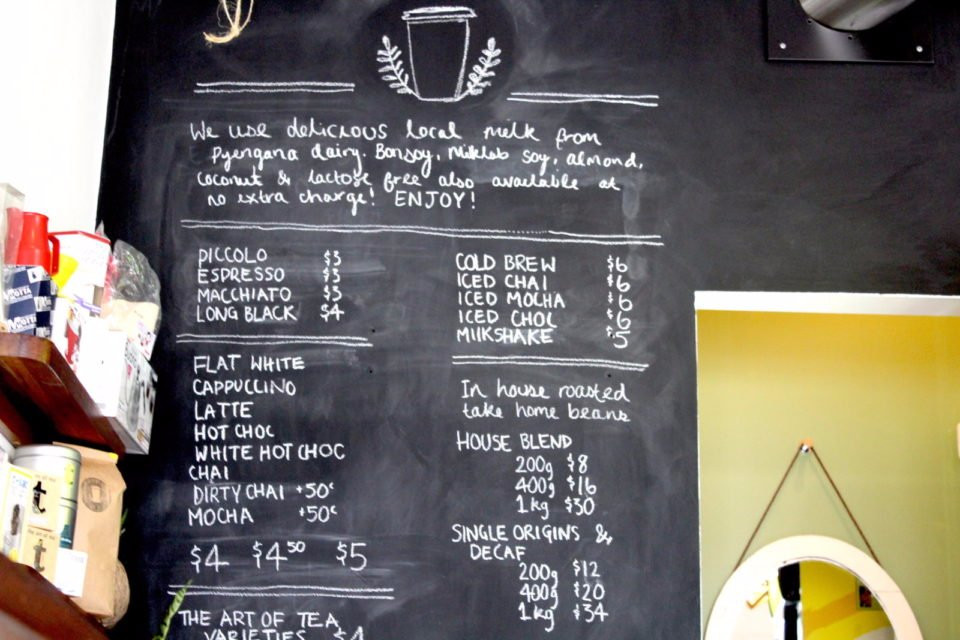 We use delicious local milk from
Pyengana dairy. Bonsoy, Milklab soy, almond,
coconut & lactose free also available at
no extra charge! ENJOY!
PICCOLO $3
ESPRESSO $3
MACCHIATO $3
LONG BLACK $4
FLAT WHITE
CAPPUCCINO
LATTE
HOT CHOC
WHITE HOT CHOC
CHAI
DIRTY CHAI +50c
MOCHA +50c
$4 $4.50 $5
THE ART OF TEA
VARIETIES $4
COLD BREW $6
ICED CHAI $6
ICED MOCHA $6
ICED CHOC $6
MILKSHAKE $5
In house roasted
take home beans
HOUSE BLEND
200g $8
400g $16
1kg $30
SINGLE ORIGINS &
DECAF
200g $12
400g $20
1kg $34